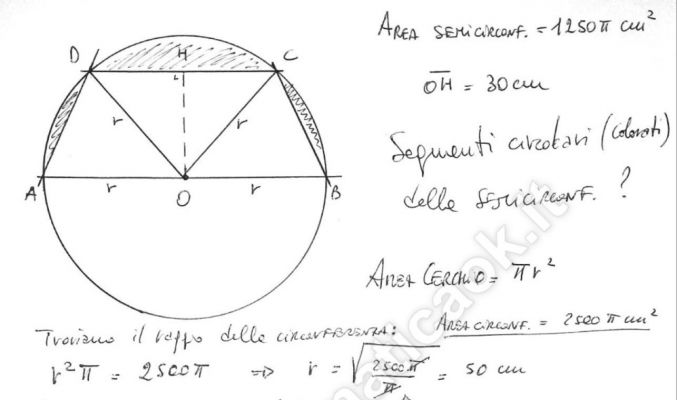 AREA SEMICIRCONF. = 1250π cm²
OH = 30 cm
Segmenti circolari (colorati)
delle SEMICIRCONF. ?
D H C
r r
A r O r B
AREA CERCHIO = πr²
Troviamo il raggio delle CIRCONFERENZA: AREA CIRCONF. = 2500 π cm²
r²π = 2500π ⇒ r = √(2500π/π) = 50 cm